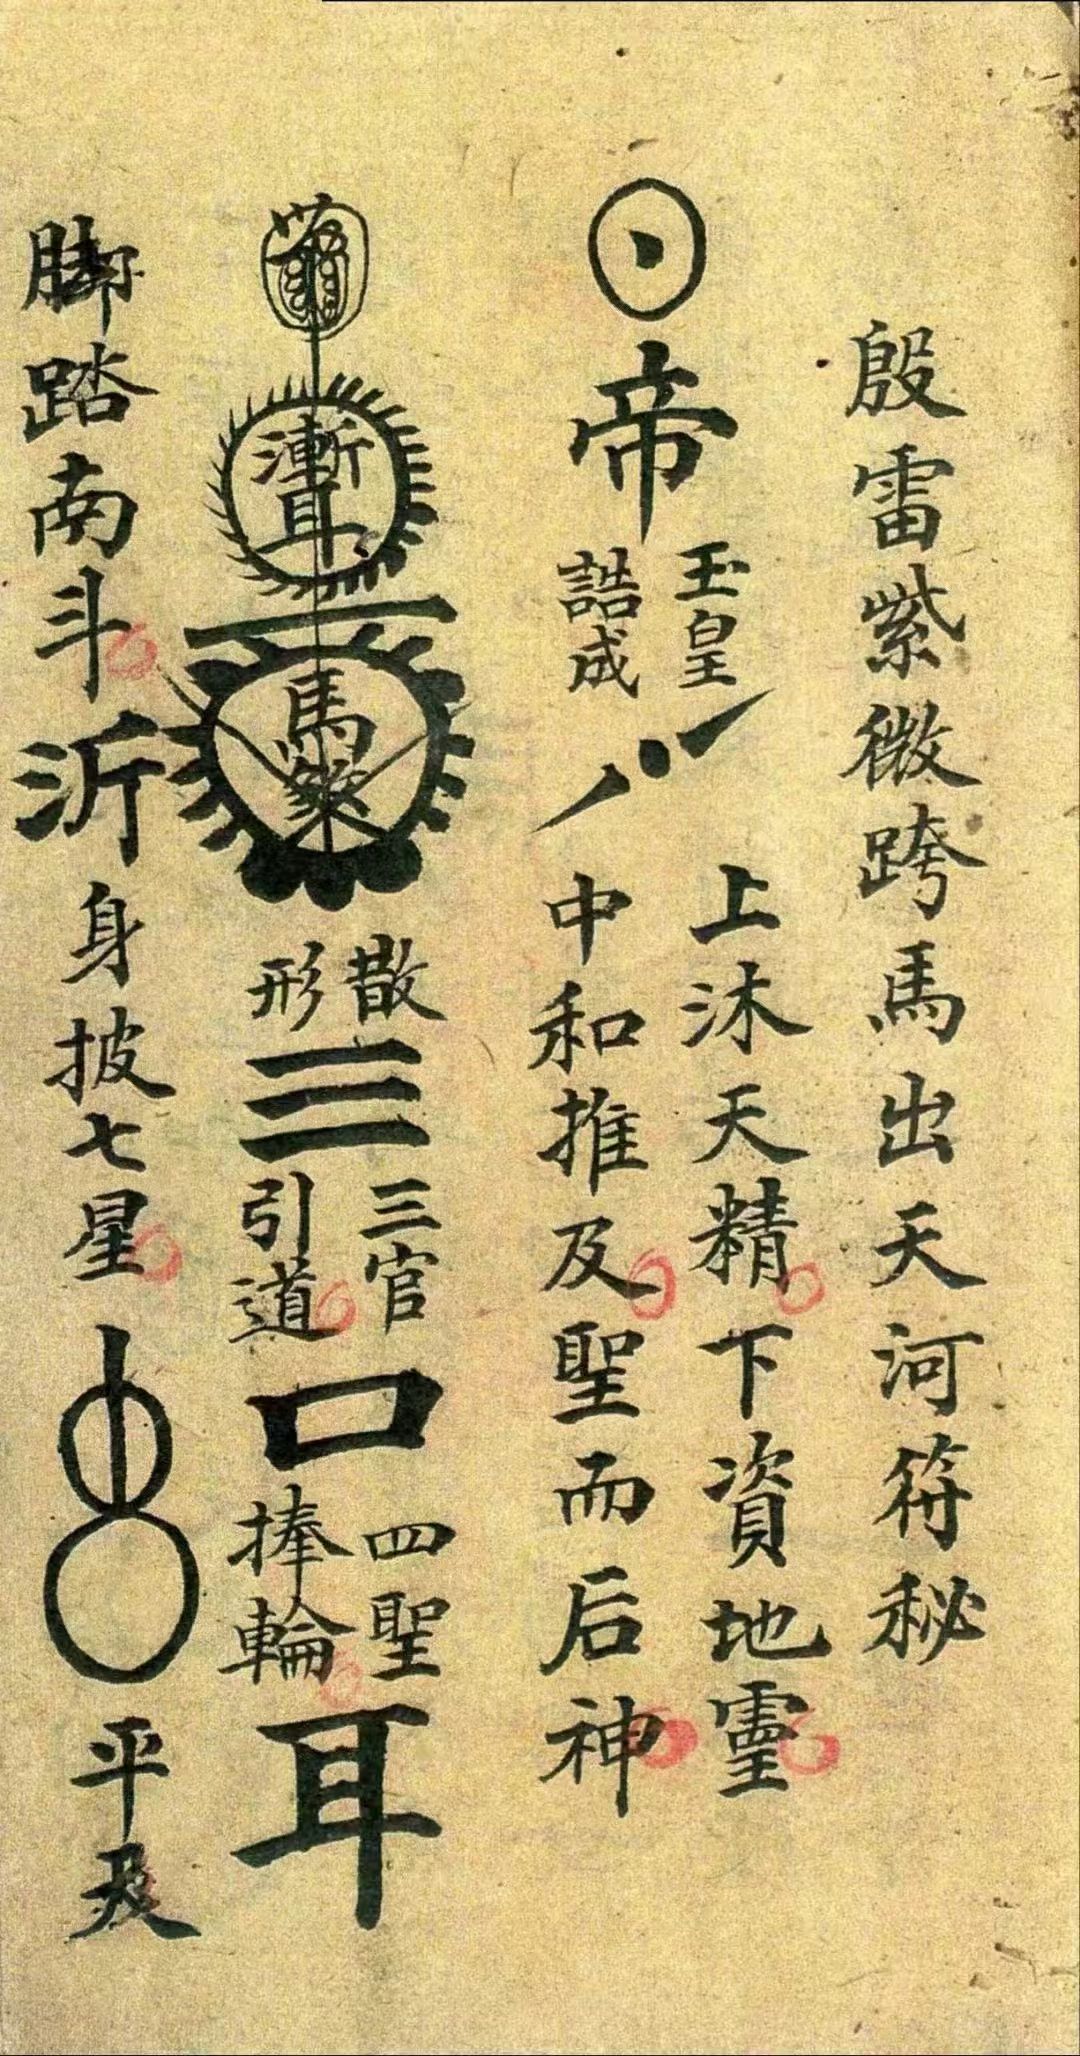 殷雷紫微跨馬出天河符秘
帝
玉皇
誥成
上沐天精下資地靈
中和推及聖而后神
漸耳
馬
散
形
三
三官
引道
口
四聖
捧輪
耳
脚踏南斗
沂
身披七星
平